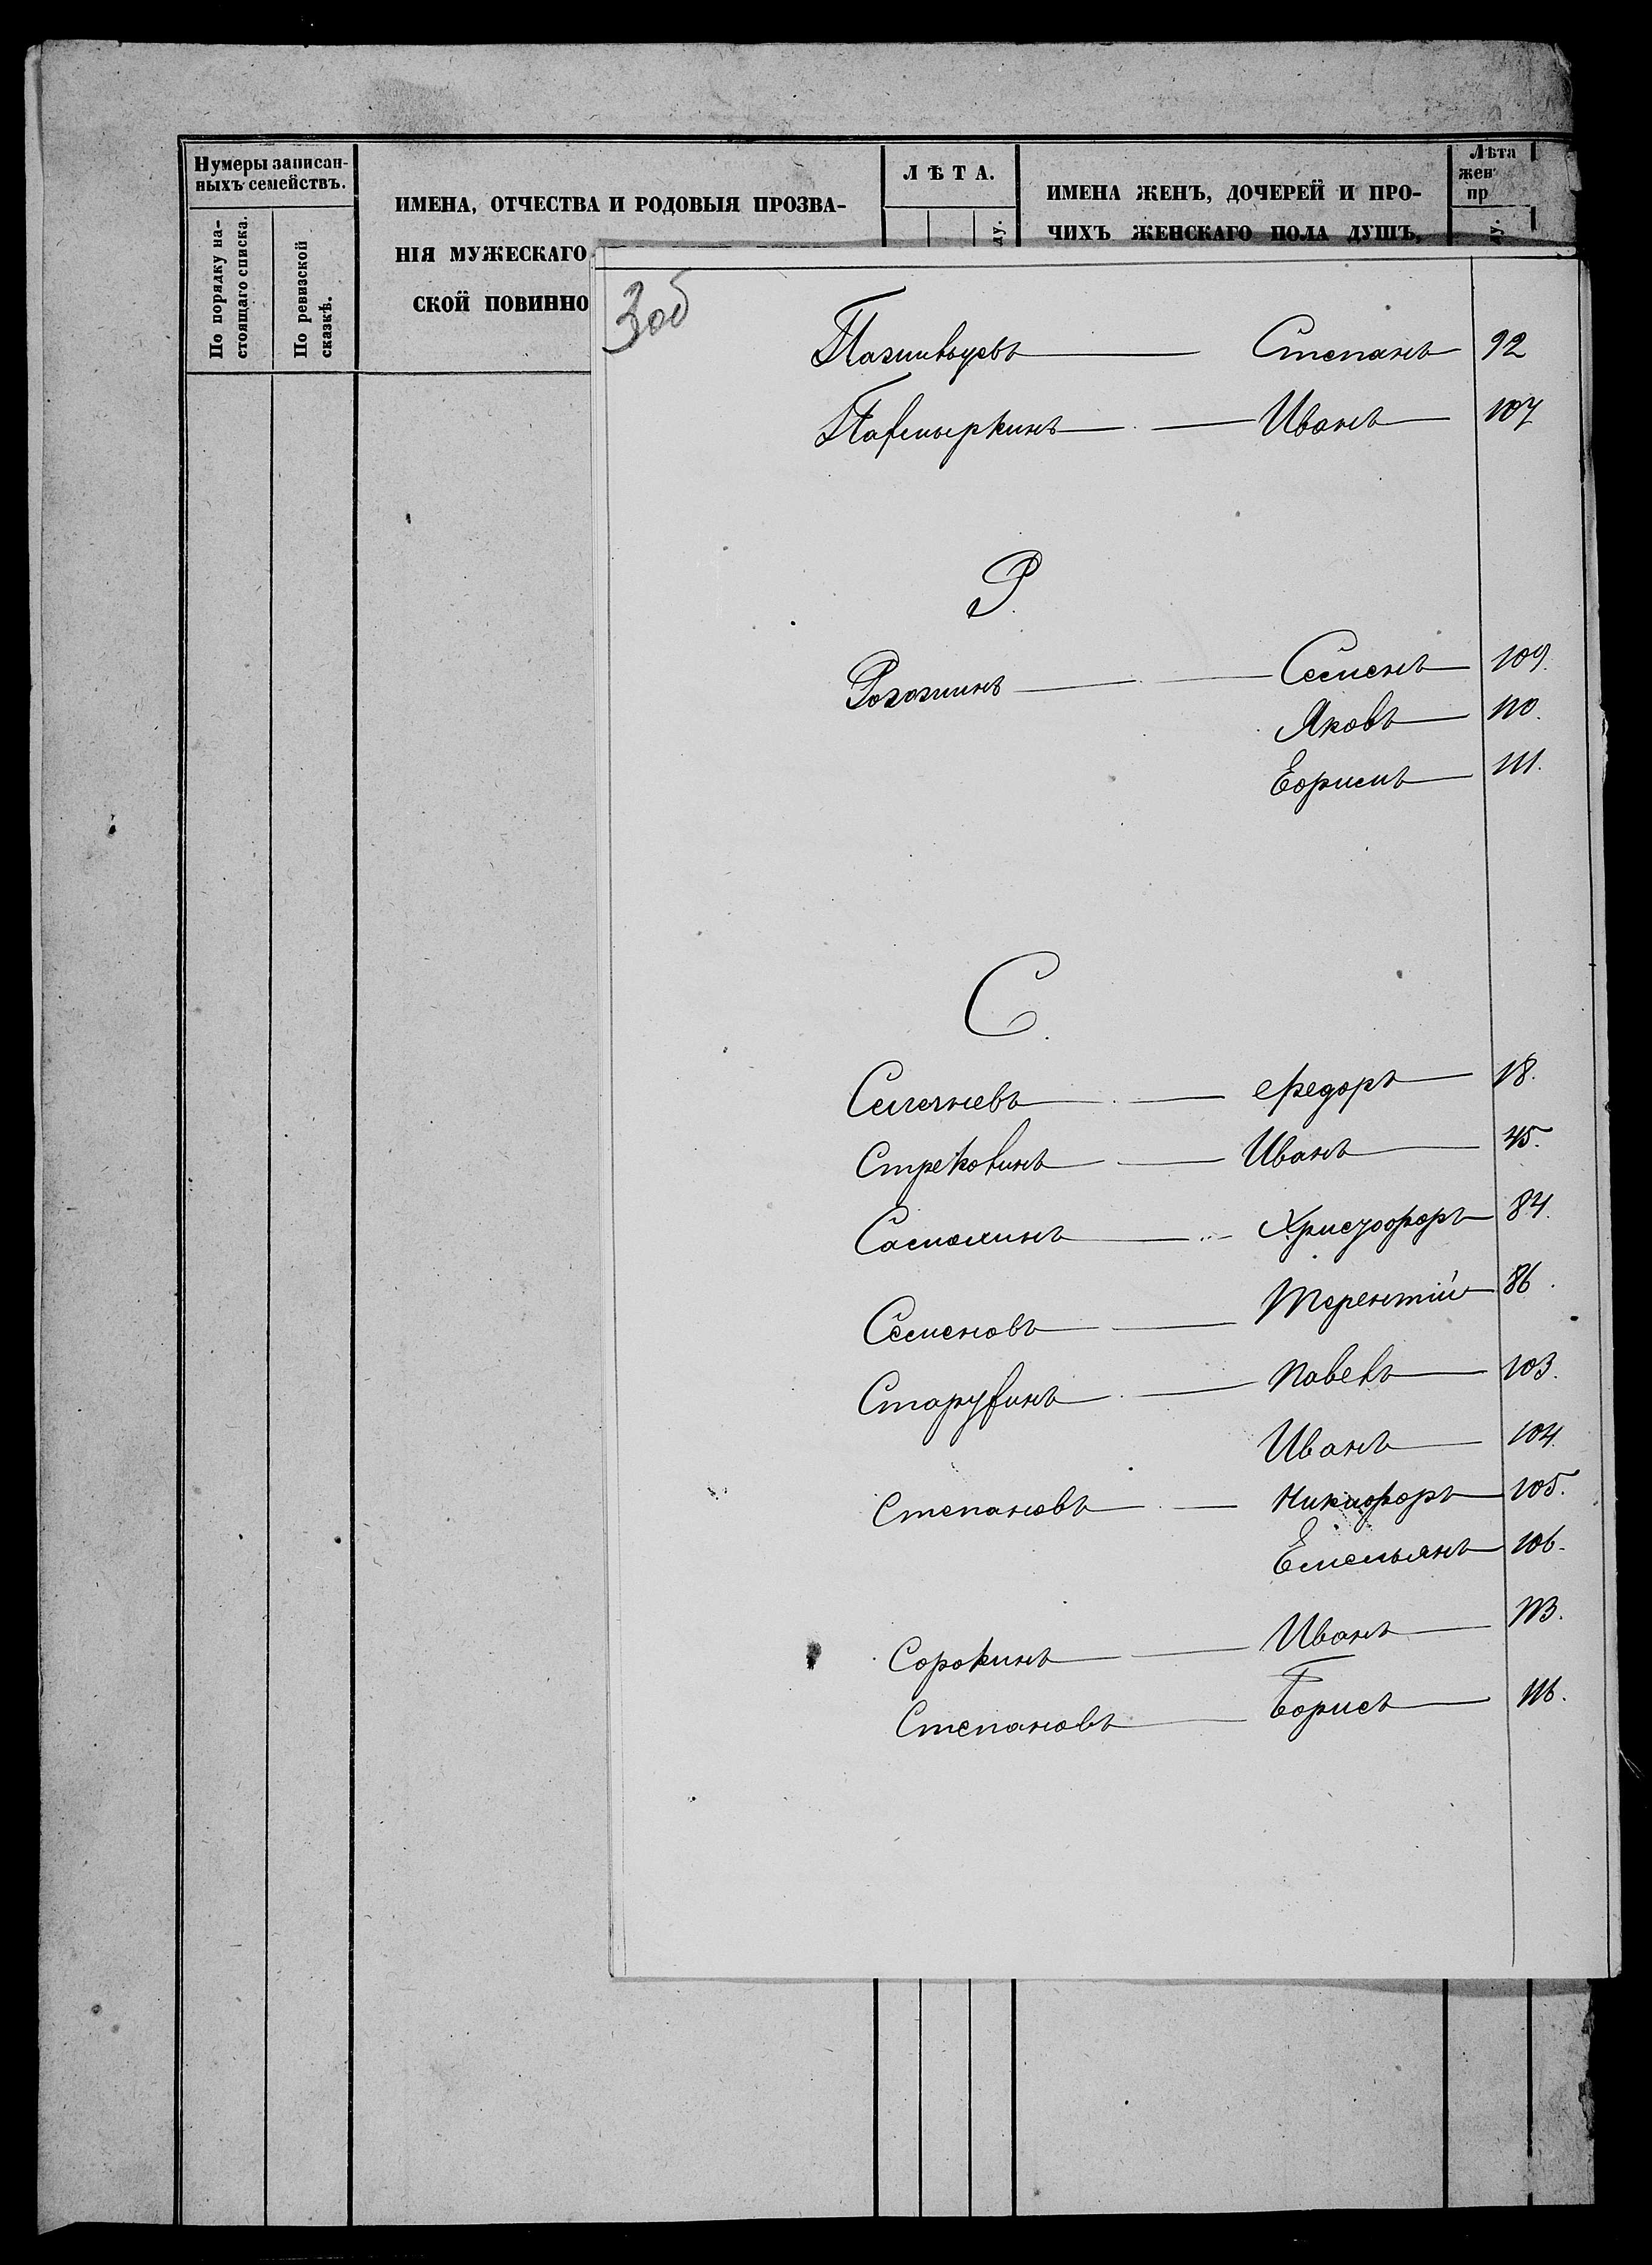 Нумеры записан-
ныхъ семействъ.
По порядку на-
стоящаго списка.
По ревизской
сказкѣ.
ИМЕНА, ОТЧЕСТВА И РОДОВЫЯ ПРОЗВА-
НІЯ МУЖЕСКАГО
СКОЙ ПОВИННО
ЛѢТА.
ИМЕНА ЖЕНЪ, ДОЧЕРЕЙ И ПРО-
ЧИХЪ ЖЕНСКАГО ПОЛА ДУШЪ,
Лѣта
жен
пр
3об
Степанъ 92
Иванъ 107
Р.
Рогожинъ Семенъ 109.
Яковъ 110.
111.
С.
Селезневъ Федоръ 18.
Стрековинъ Иванъ 45.
Христофоръ 84.
Семеновъ Терентій 86.
Павелъ 103.
Иванъ 104.
Степановъ Никифоръ 105.
Емельянъ 106.
Сорокинъ Иванъ 113.
Степановъ Борисъ 116.